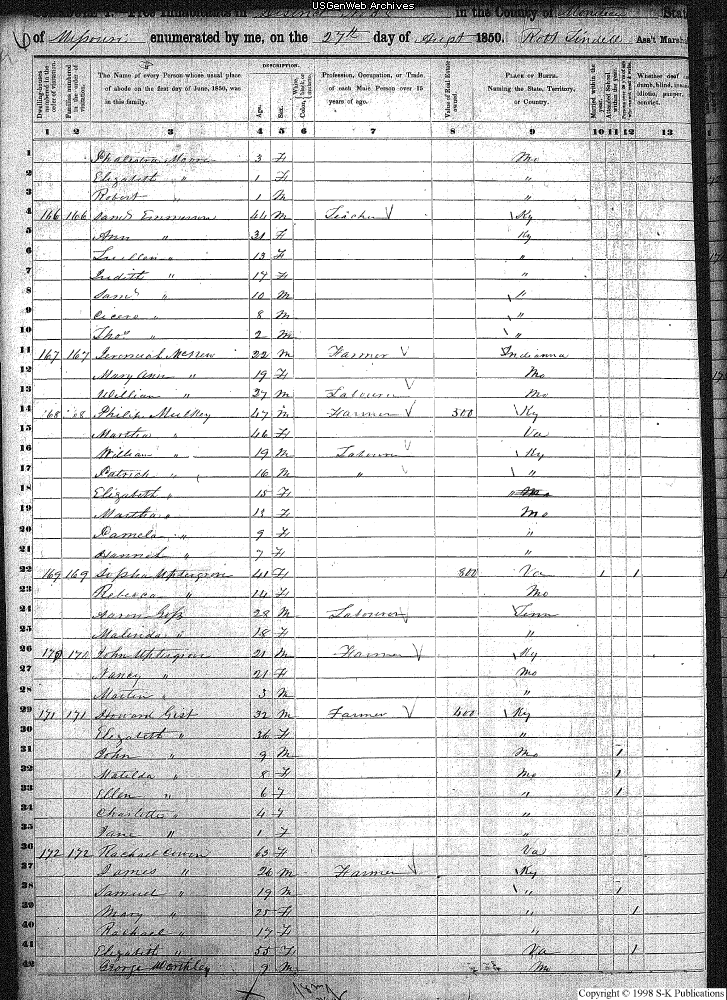 USGenWeb Archives
in the County of
of Missouri enumerated by me, on the 27th day of Sept 1850. Robt Lindell Ass't Marsh
DESCRIPTION.
Dwelling-houses numbered in the order of visitation.
Families numbered in the order of visitation.
The Name of every Person whose usual place of abode on the first day of June, 1850, was in this family.
Age.
Sex.
Color,
Profession, Occupation, or Trade of each Male Person over 15 years of age.
Value of Real Estate owned
PLACE OF BIRTH. Naming the State, Territory, or Country.
Married within the year.
Attended School within the
Whether deaf dumb, blind, idiotic, pauper, convict.
1 2 3 4 5 6 7 8 9 10 11 12 13
1 Moore 3 F Mo
2 Elizabeth " 1 F "
3 Robert " 1 M "
4 166 166 Saml Emmerson 44 M Teacher Ky
5 Ann " 31 F Ky
6 Luellen " 13 F "
7 Judith " 17 F "
8 Saml " 10 M "
9 Cicero " 8 M "
10 Thos " 2 M "
11 167 167 Jeremiah McNew 22 M Farmer Indianna
12 Mary Ann " 19 F Mo
13 William " 27 M Labourer Mo
14 68 68 Philip Mulkey 47 M Farmer 300 Ky
15 Martha " 46 F Va
16 William " 19 M Labourer Ky
17 Patrick " 16 M " "
18 Elizabeth " 15 F " Mo
19 Martha " 13 F Mo
20 Pamela " 9 F "
21 Hannah " 7 F "
22 169 169 Sophia Uptegrove 41 F 800 Va 1 1
23 Rebecca " 14 F Mo
24 Aaron Goss 28 M Labourer Tenn
25 Malinda " 18 F "
26 170 170 John Uptegrove 21 M Farmer Ky
27 Nancy " 21 F Mo
28 Martin " 3 M "
29 171 171 Howard Gist 32 M Farmer 400 Ky
30 Elizabeth " 36 F "
31 John " 9 M Mo 1
32 Matilda " 8 F Mo 1
33 Ellen " 6 F " 1
34 Charlotte " 4 F "
35 Jane " 1 F "
36 172 172 Rachael Cowen 63 F Va
37 James " 26 M Farmer Ky
38 Samuel " 19 M " 1
39 Mary " 25 F " 1
40 Rachael " 17 F "
41 Elizabeth " 55 F Va 1
42 George Worthley 9 M Mo
Copyright © 1998 S-K Publications